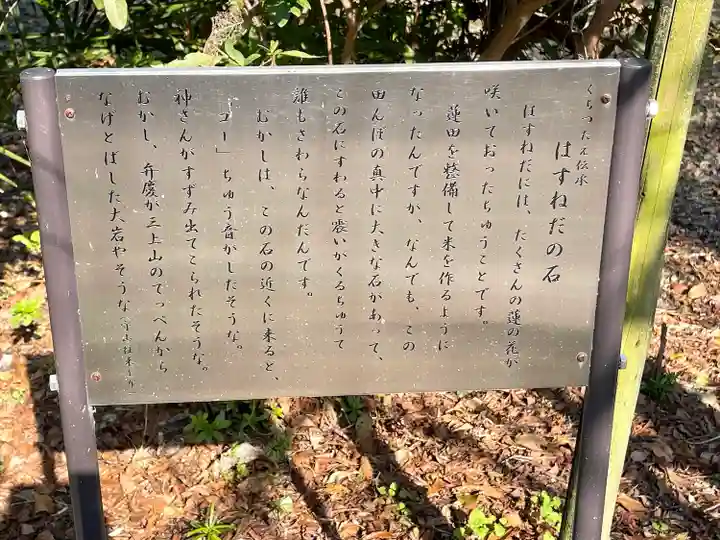 くちつたえ伝承
はすねだの石
はすねだには、たくさんの蓮の花が
咲いておったちゅうことです。
蓮田を整備して米を作るように
なったんですが、なんでも、この
田んぼの真中に大きな石があって、
この石にすわると震いがくるちゅうて
誰もさわらなんだんです。
むかしは、この石の近くに来ると、
「ゴー」ちゅう音がしたそうな。
神さんがすずみ出てこられたそうな。
むかし、弁慶が三上山のてっぺんから
なげとばした大岩やそうな